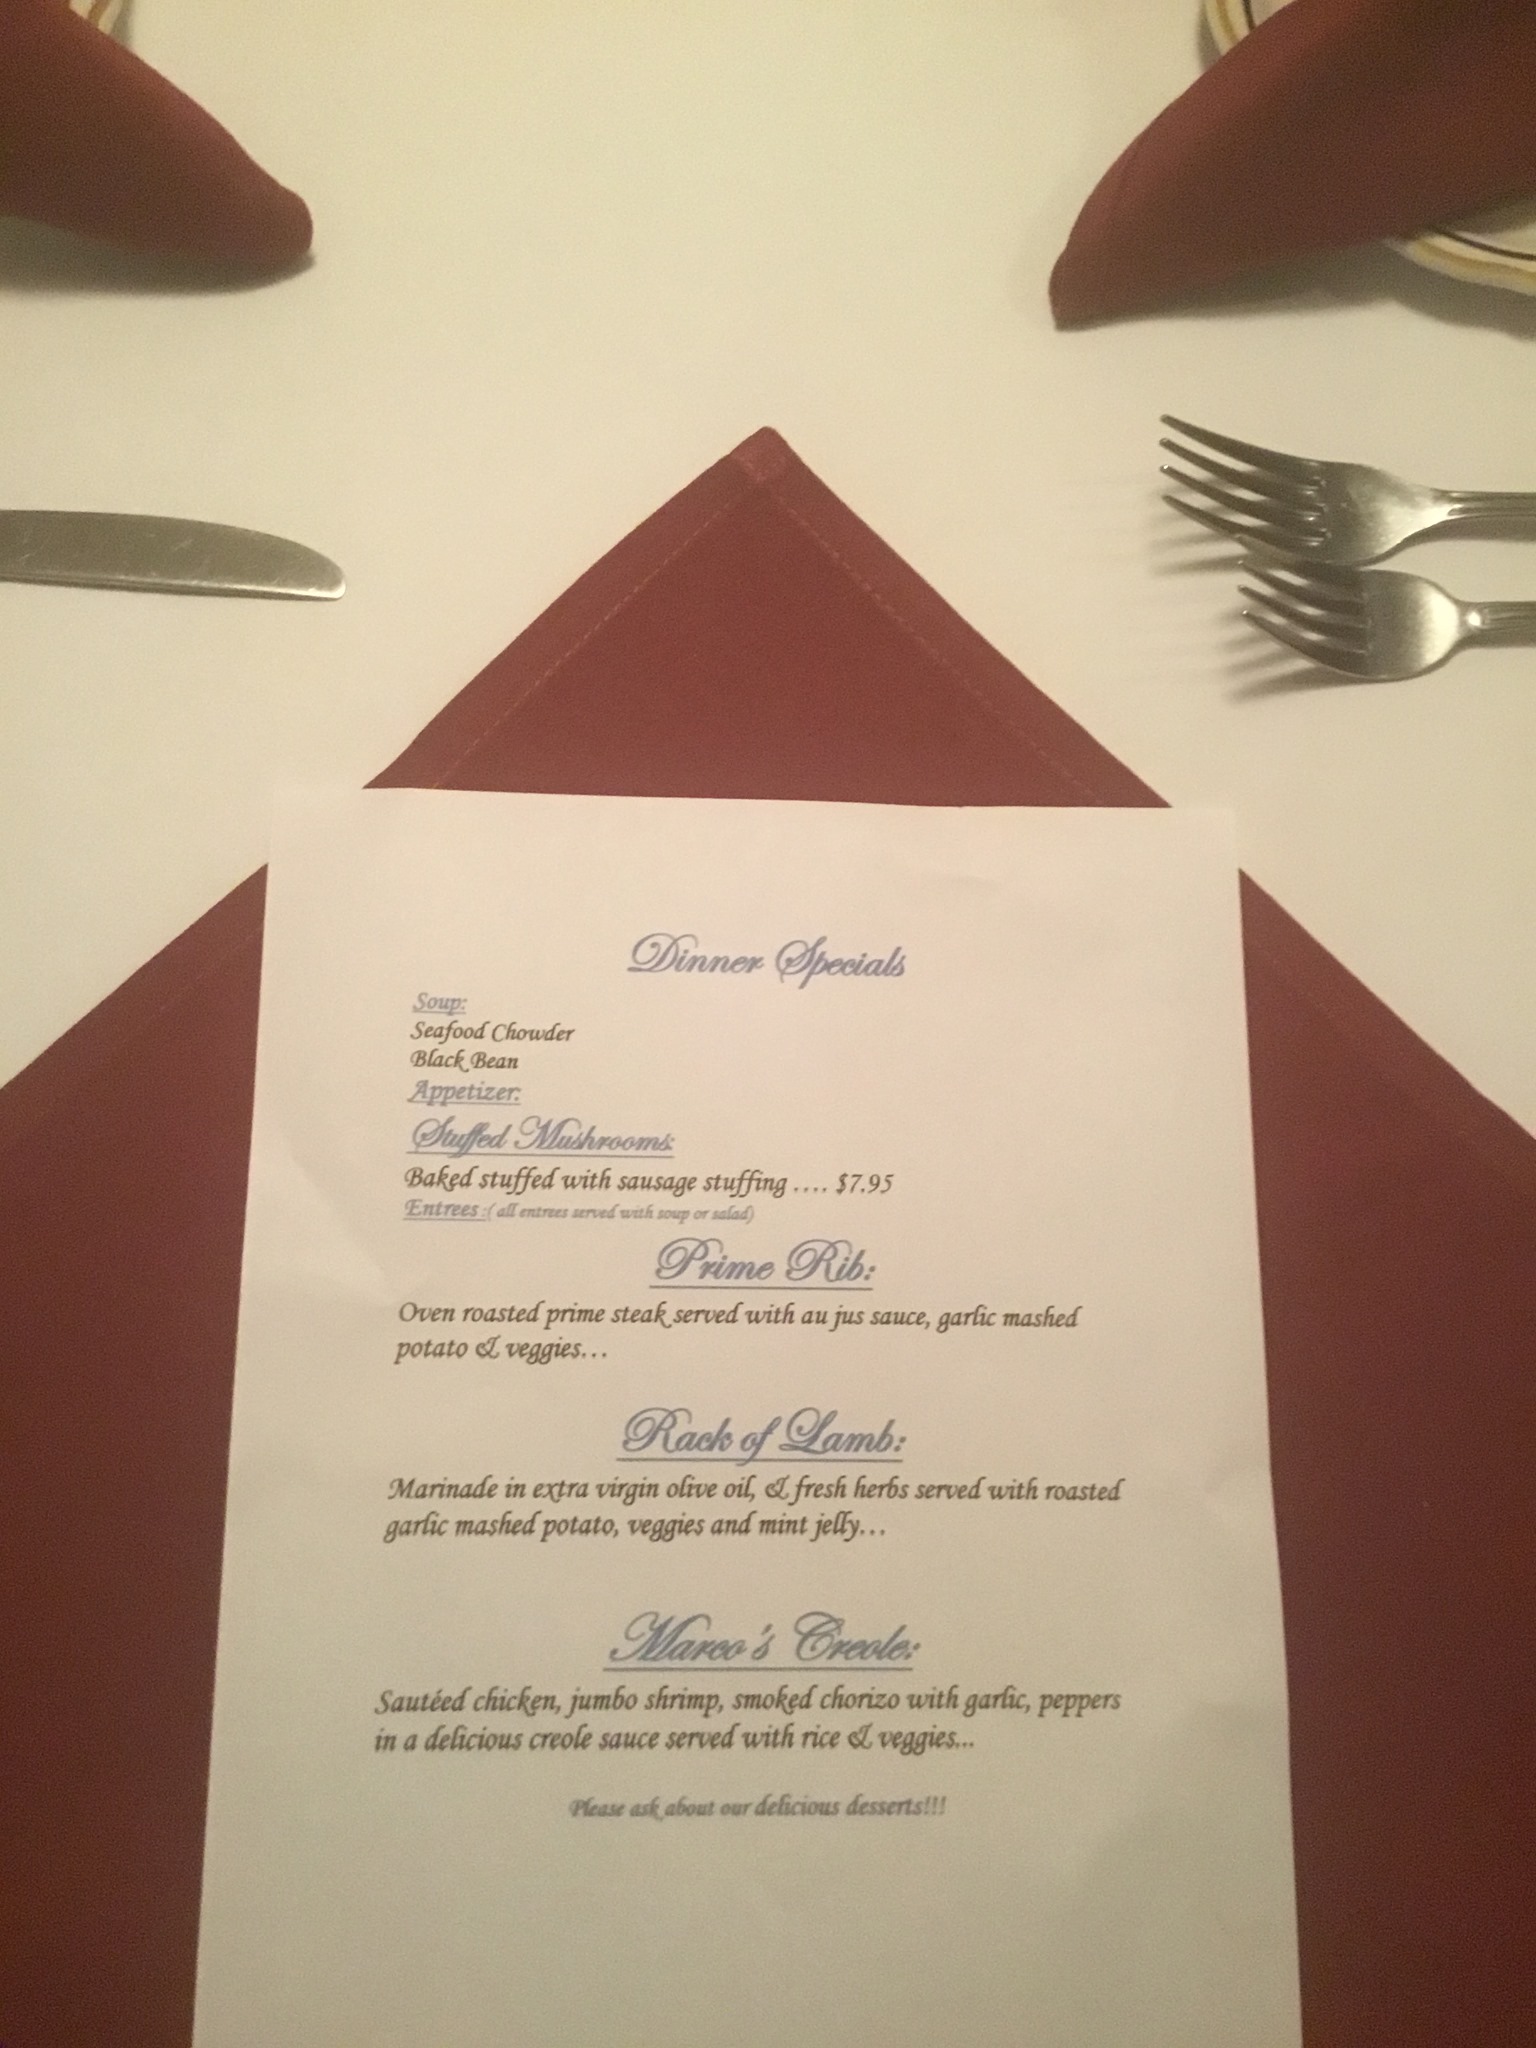 Dinner Specials
Soup:
Seafood Chowder
Black Bean
Appetizer:
Stuffed Mushrooms:
Baked stuffed with sausage stuffing .... $7.95
Entrees :( all entrees served with soup or salad)
Prime Rib:
Oven roasted prime steak served with au jus sauce, garlic mashed
potato & veggies…
Rack of Lamb:
Marinade in extra virgin olive oil, & fresh herbs served with roasted
garlic mashed potato, veggies and mint jelly…
Marco's Creole:
Sautéed chicken, jumbo shrimp, smoked chorizo with garlic, peppers
in a delicious creole sauce served with rice & veggies...
Please ask about our delicious desserts!!!